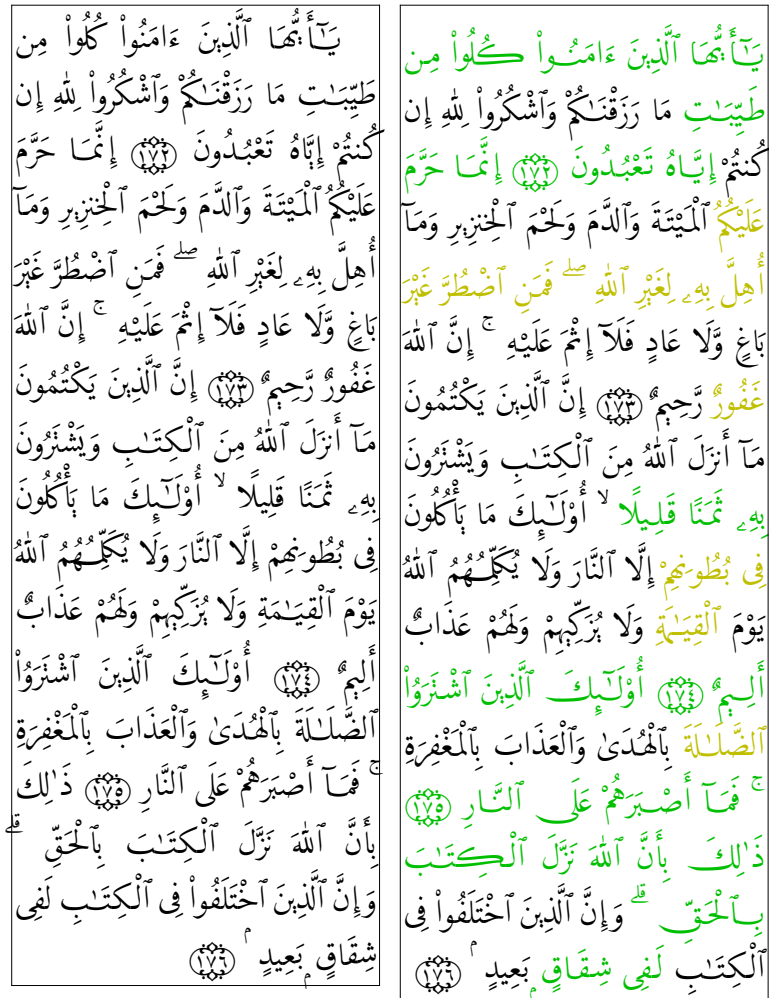 يَـٰٓأَيُّهَا ٱلَّذِينَ ءَامَنُوا۟ كُلُوا۟ مِن
طَيِّبَـٰتِ مَا رَزَقْنَـٰكُمْ وَٱشْكُرُوا۟ لِلَّهِ إِن
كُنتُمْ إِيَّاهُ تَعْبُدُونَ ۝١٧٢ إِنَّمَا حَرَّمَ
عَلَيْكُمُ ٱلْمَيْتَةَ وَٱلدَّمَ وَلَحْمَ ٱلْخِنزِيرِ وَمَآ
أُهِلَّ بِهِۦ لِغَيْرِ ٱللَّهِ ۖ فَمَنِ ٱضْطُرَّ غَيْرَ
بَاغٍ وَّلَا عَادٍ فَلَآ إِثْمَ عَلَيْهِ ۚ إِنَّ ٱللَّهَ
غَفُورٌ رَّحِيمٌ ۝١٧٣ إِنَّ ٱلَّذِينَ يَكْتُمُونَ
مَآ أَنزَلَ ٱللَّهُ مِنَ ٱلْكِتَـٰبِ وَيَشْتَرُونَ
بِهِۦ ثَمَنًا قَلِيلًا ۙ أُو۟لَـٰٓئِكَ مَا يَأْكُلُونَ
فِى بُطُونِهِمْ إِلَّا ٱلنَّارَ وَلَا يُكَلِّمُهُمُ ٱللَّهُ
يَوْمَ ٱلْقِيَـٰمَةِ وَلَا يُزَكِّيهِمْ وَلَهُمْ عَذَابٌ
أَلِيمٌ ۝١٧٤ أُو۟لَـٰٓئِكَ ٱلَّذِينَ ٱشْتَرَوُا۟
ٱلضَّلَـٰلَةَ بِٱلْهُدَىٰ وَٱلْعَذَابَ بِٱلْمَغْفِرَةِ
ۚ فَمَآ أَصْبَرَهُمْ عَلَى ٱلنَّارِ ۝١٧٥ ذَٰلِكَ
بِأَنَّ ٱللَّهَ نَزَّلَ ٱلْكِتَـٰبَ بِٱلْحَقِّ ۗ
وَإِنَّ ٱلَّذِينَ ٱخْتَلَفُوا۟ فِى ٱلْكِتَـٰبِ لَفِى
شِقَاقٍۭ بَعِيدٍ ۢ ۝١٧٦
يَـٰٓأَيُّهَا ٱلَّذِينَ ءَامَنُوا۟ كُلُوا۟ مِن
طَيِّبَـٰتِ مَا رَزَقْنَـٰكُمْ وَٱشْكُرُوا۟ لِلَّهِ إِن
كُنتُمْ إِيَّاهُ تَعْبُدُونَ ۝١٧٢ إِنَّمَا حَرَّمَ
عَلَيْكُمُ ٱلْمَيْتَةَ وَٱلدَّمَ وَلَحْمَ ٱلْخِنزِيرِ وَمَآ
أُهِلَّ بِهِۦ لِغَيْرِ ٱللَّهِ ۖ فَمَنِ ٱضْطُرَّ غَيْرَ
بَاغٍ وَّلَا عَادٍ فَلَآ إِثْمَ عَلَيْهِ ۚ إِنَّ ٱللَّهَ
غَفُورٌ رَّحِيمٌ ۝١٧٣ إِنَّ ٱلَّذِينَ يَكْتُمُونَ
مَآ أَنزَلَ ٱللَّهُ مِنَ ٱلْكِتَـٰبِ وَيَشْتَرُونَ
بِهِۦ ثَمَنًا قَلِيلًا ۙ أُو۟لَـٰٓئِكَ مَا يَأْكُلُونَ
فِى بُطُونِهِمْ إِلَّا ٱلنَّارَ وَلَا يُكَلِّمُهُمُ ٱللَّهُ
يَوْمَ ٱلْقِيَـٰمَةِ وَلَا يُزَكِّيهِمْ وَلَهُمْ عَذَابٌ
أَلِيمٌ ۝١٧٤ أُو۟لَـٰٓئِكَ ٱلَّذِينَ ٱشْتَرَوُا۟
ٱلضَّلَـٰلَةَ بِٱلْهُدَىٰ وَٱلْعَذَابَ بِٱلْمَغْفِرَةِ
ۚ فَمَآ أَصْبَرَهُمْ عَلَى ٱلنَّارِ ۝١٧٥
ذَٰلِكَ بِأَنَّ ٱللَّهَ نَزَّلَ ٱلْكِتَـٰبَ
بِٱلْحَقِّ ۗ وَإِنَّ ٱلَّذِينَ ٱخْتَلَفُوا۟ فِى
ٱلْكِتَـٰبِ لَفِى شِقَاقٍۭ بَعِيدٍ ۢ ۝١٧٦